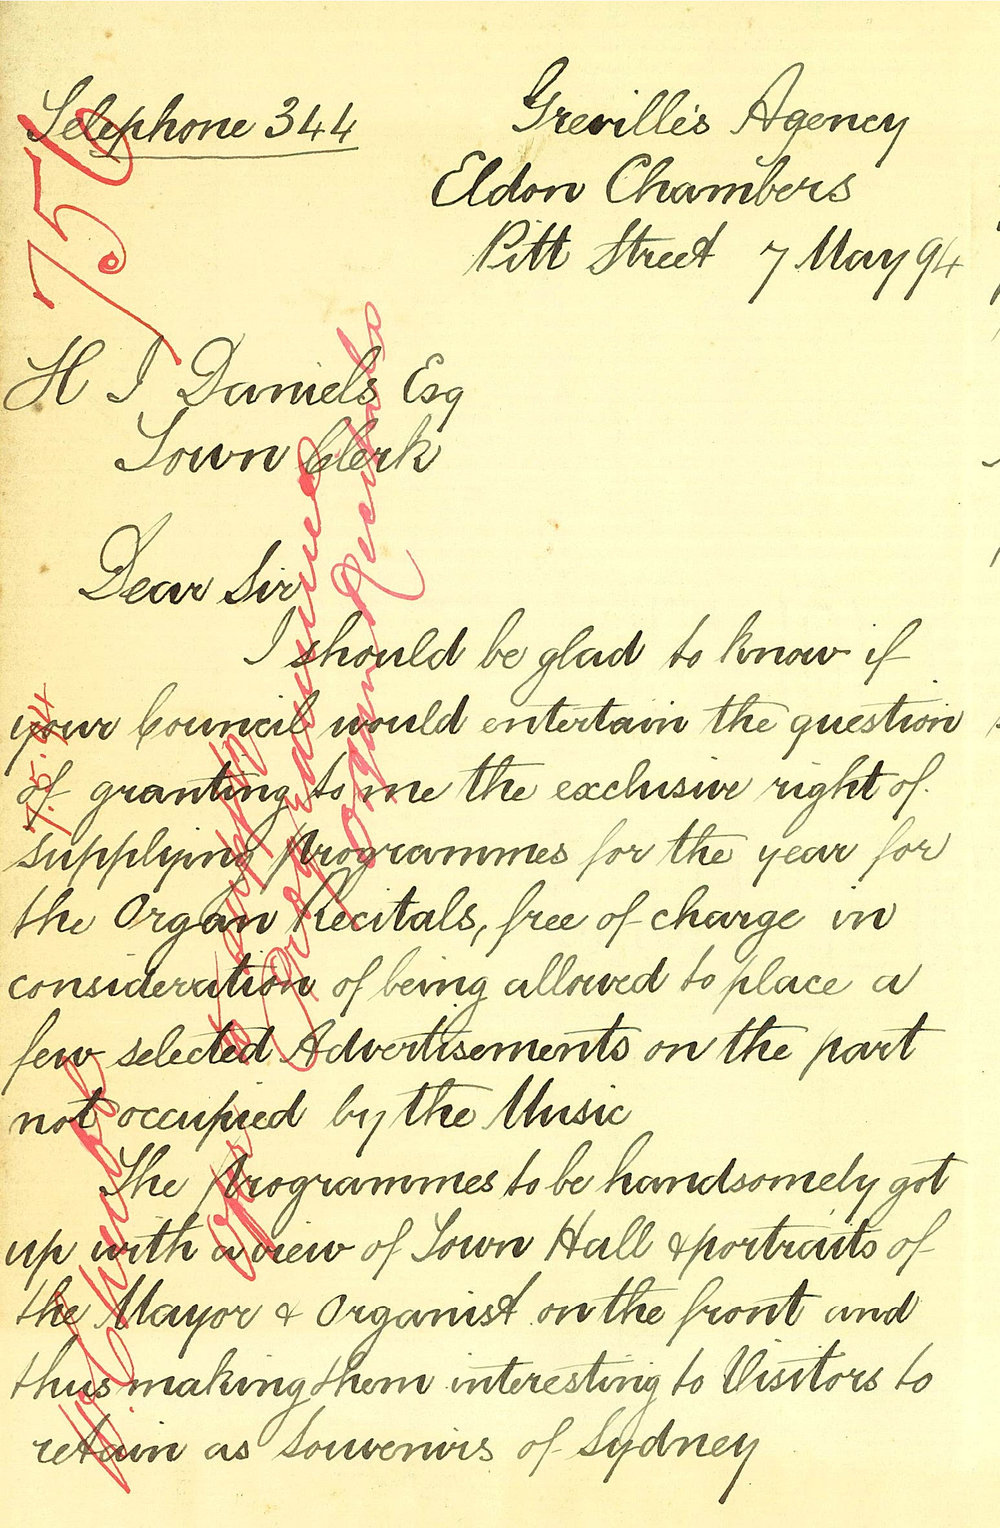 Telephone 344
Greville's Agency
Eldon Chambers
Pitt Street 7 May 94
756
H J Daniels Esq
Town Clerk
Dear Sir
I should be glad to know if
your Council would entertain the question
of granting to me the exclusive right of
supplying Programmes for the year for
the Organ Recitals, free of charge in
consideration of being allowed to place a
few selected Advertisements on the part
not occupied by the Music
The Programmes to be handsomely got
up with a view of Town Hall & portraits of
the Mayor & Organist on the front and
thus making them interesting to Visitors to
retain as Souvenirs of Sydney
Offer to supply
programmes
Organ Recitals
7.5.94